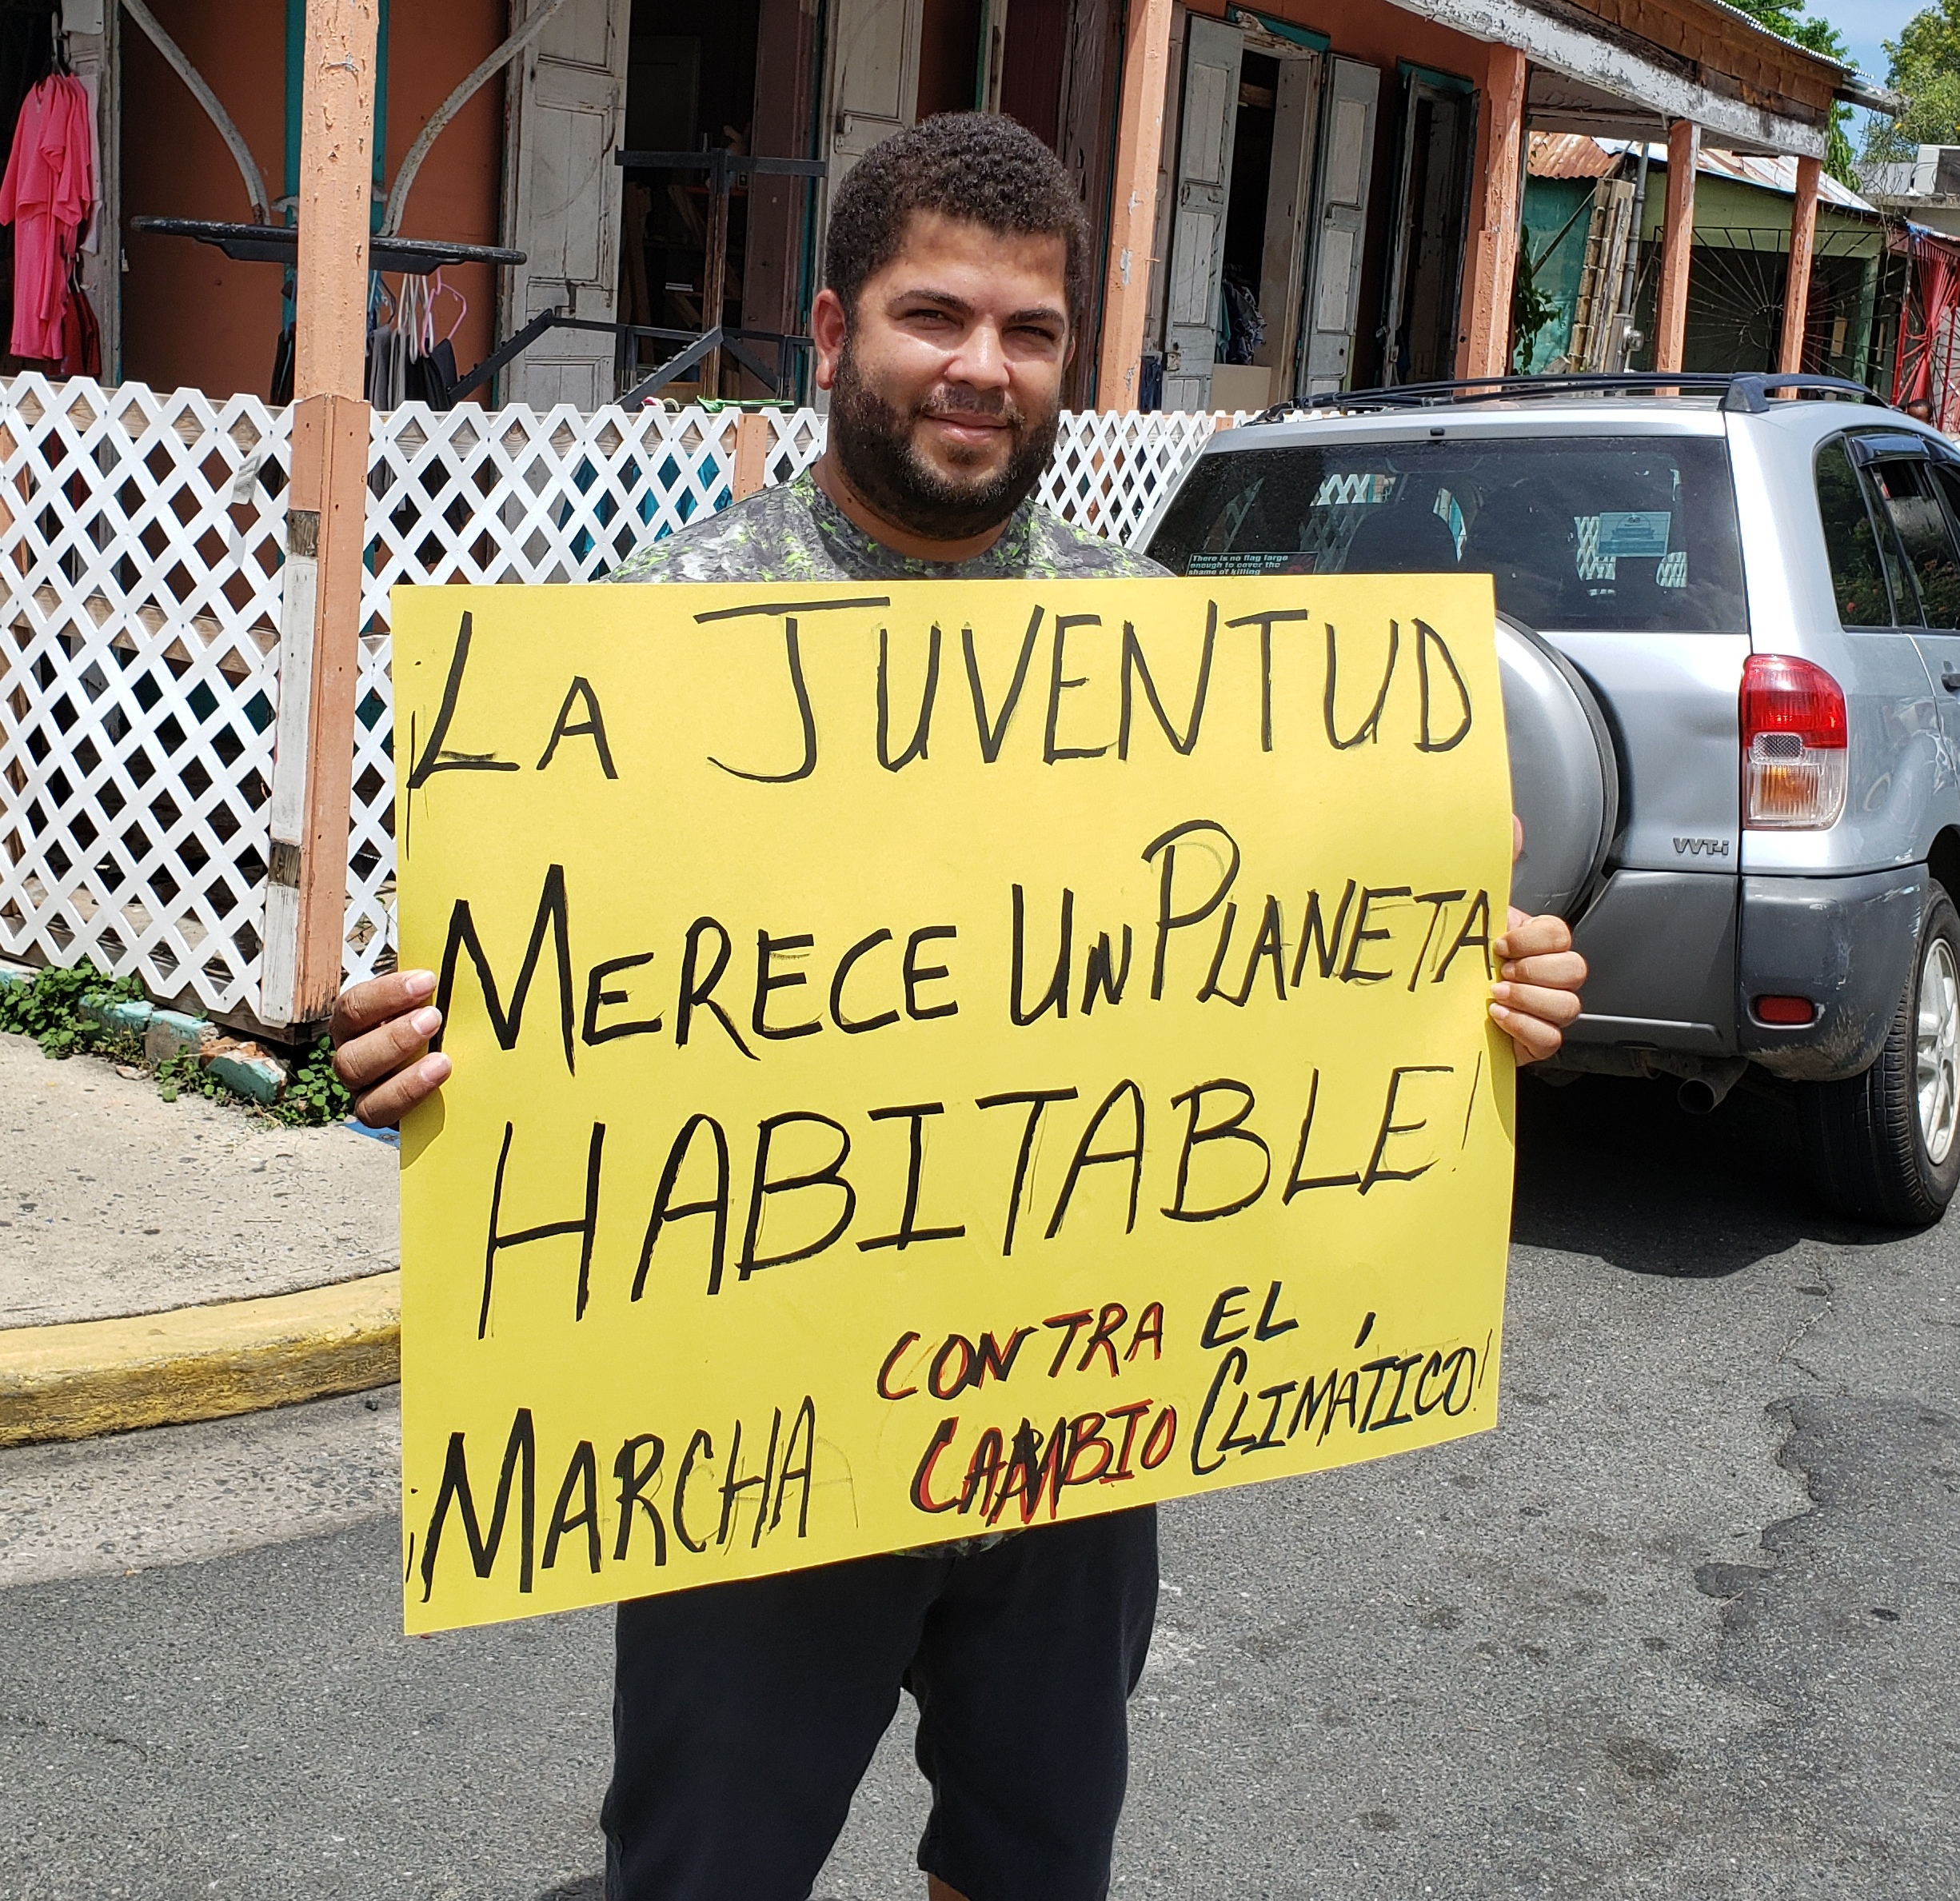 There is no flag large
enough to cover the
shame of killing
¡LA JUVENTUD
MERECE UN PLANETA
HABITABLE!
¡MARCHA CONTRA EL
CAMBIO CLIMÁTICO!
VVT-i